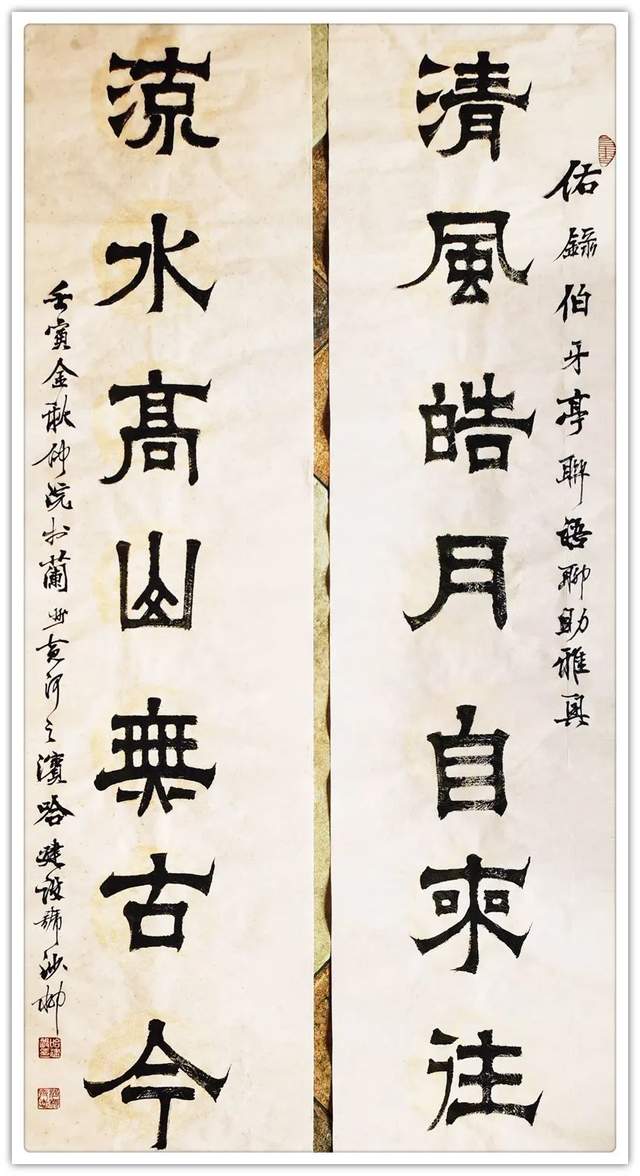 佑錄伯牙亭聯語聊助雅興
清風皓月自來往
流水高山無古今
壬寅金秋仲浣於蘭州黃河之濱哈建設號沙柳